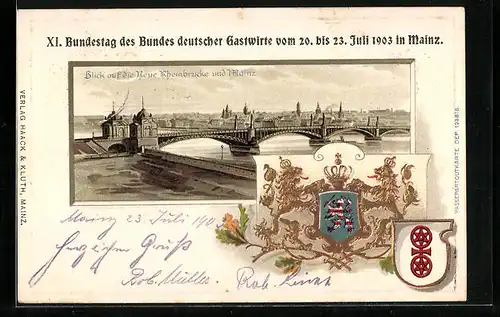 XI. Bundestag des Bundes deutscher Gastwirte vom 20. bis 23. Juli 1903 in Mainz.
Blick auf die Neue Rheinbrücke und Mainz
VERLAG HAACK & KLUTH, MAINZ.
PASSEPARTOUTKARTE DEP.
Mainz 23 Juli 190
herzlichen Gruß
Rob. Müller.
Rob.